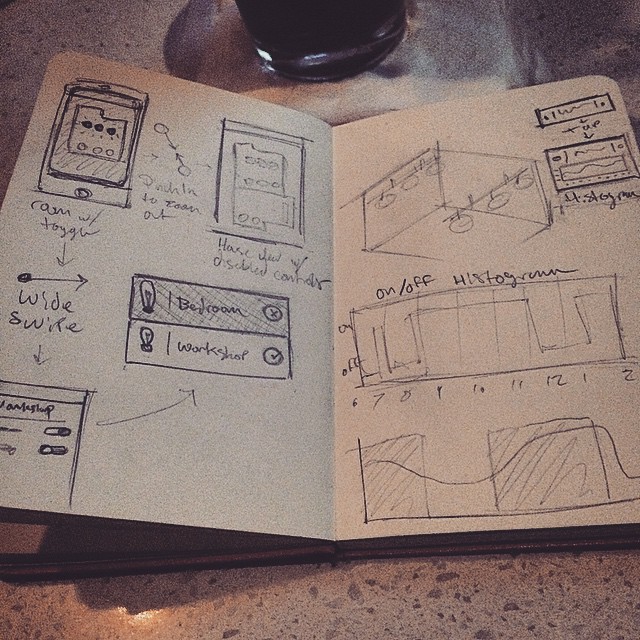 room w/
toggle
Pinch In
to zoom
out
House view w/
disabled controls
Wide
swipe
Bedroom
Workshop
Workshop
Histogram
on/off Histogram
on
off
6 7 8 9 10 11 12 1 2